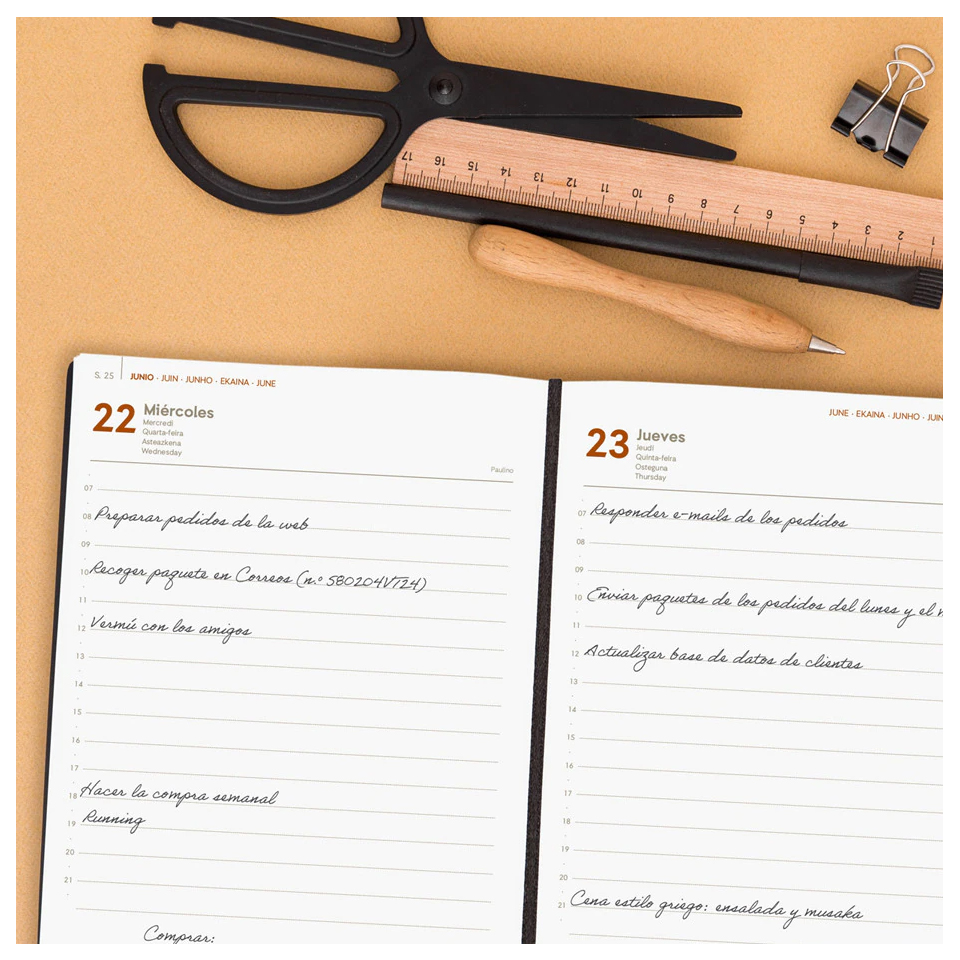 17 16 15 14 13 12 11 10 9 8 7 6 5 4 3 2 1
S. 25 JUNIO · JUIN · JUNHO · EKAINA · JUNE
22 Miércoles
Mercredi
Quarta-feira
Asteazkena
Wednesday
Paulino
07
08 Preparar pedidos de la web
09
10 Recoger paquete en Correos (n.º 580204VT24)
11
12 Vermú con los amigos
13
14
15
16
17
18 Hacer la compra semanal
19 Running
20
21
Comprar:
JUNE · EKAINA · JUNHO · JUIN
23 Jueves
Jeudi
Quinta-feira
Osteguna
Thursday
07 Responder e-mails de los pedidos
08
09
10 Enviar paquetes de los pedidos del lunes y el
11
12 Actualizar base de datos de clientes
13
14
15
16
17
18
19
20
21 Cena estilo griego: ensalada y musaka